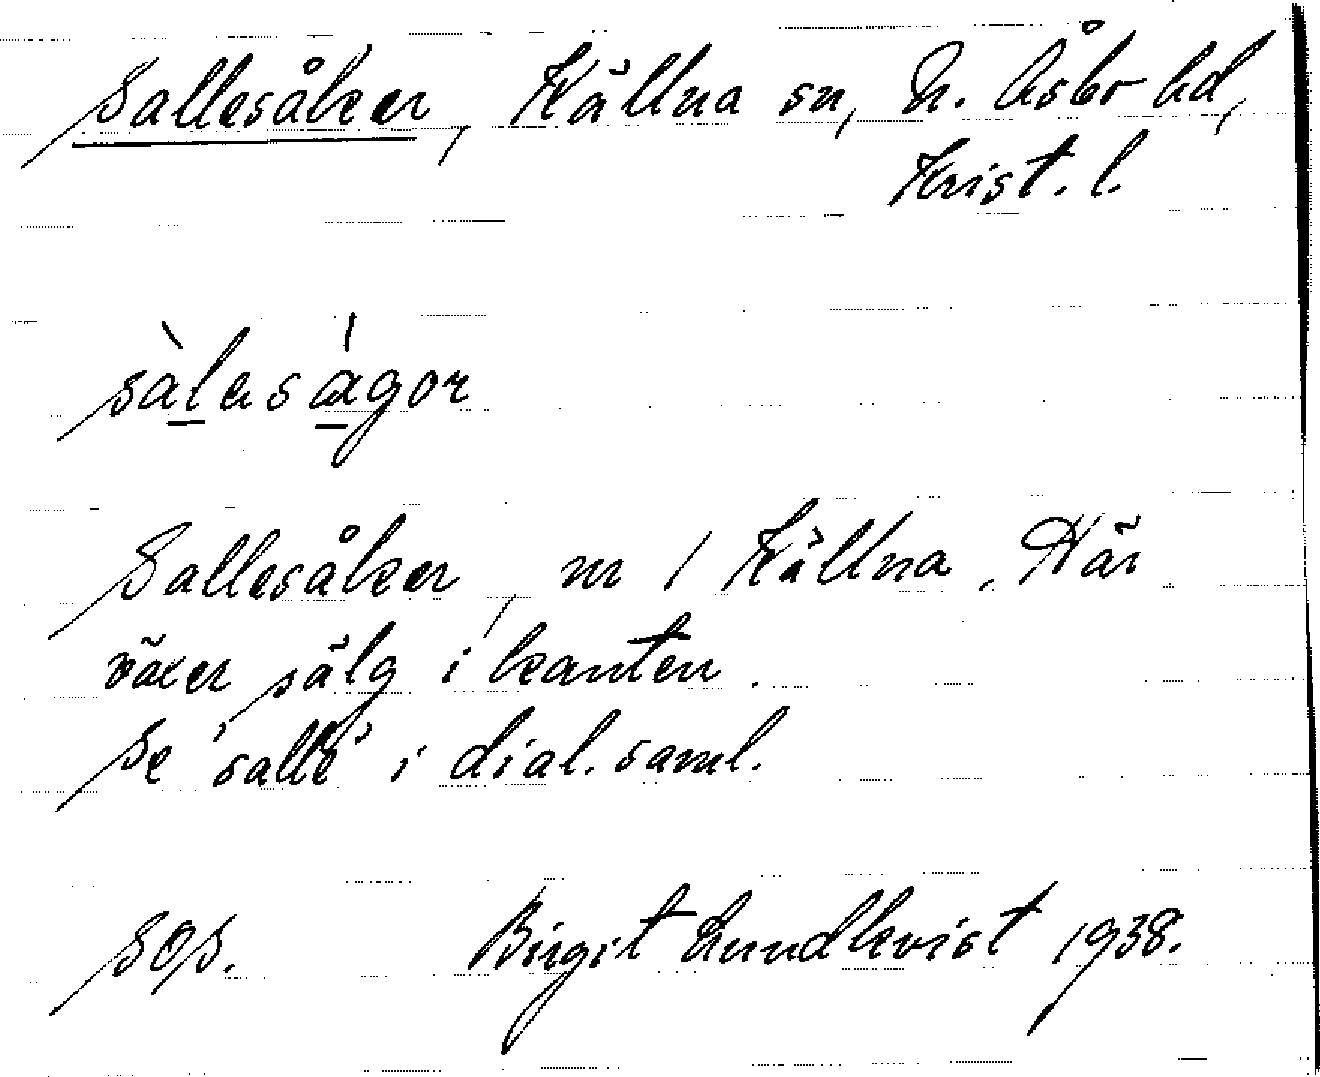 Sallesåker, Källna sn, N. Åsbo hd,
Krist. l.
sàlaságor
Sallesåker, m / Källna. Här
växer sälg i kanten.
Se 'salle' i dial. saml.
SOS. Birgit Lundkvist 1938.